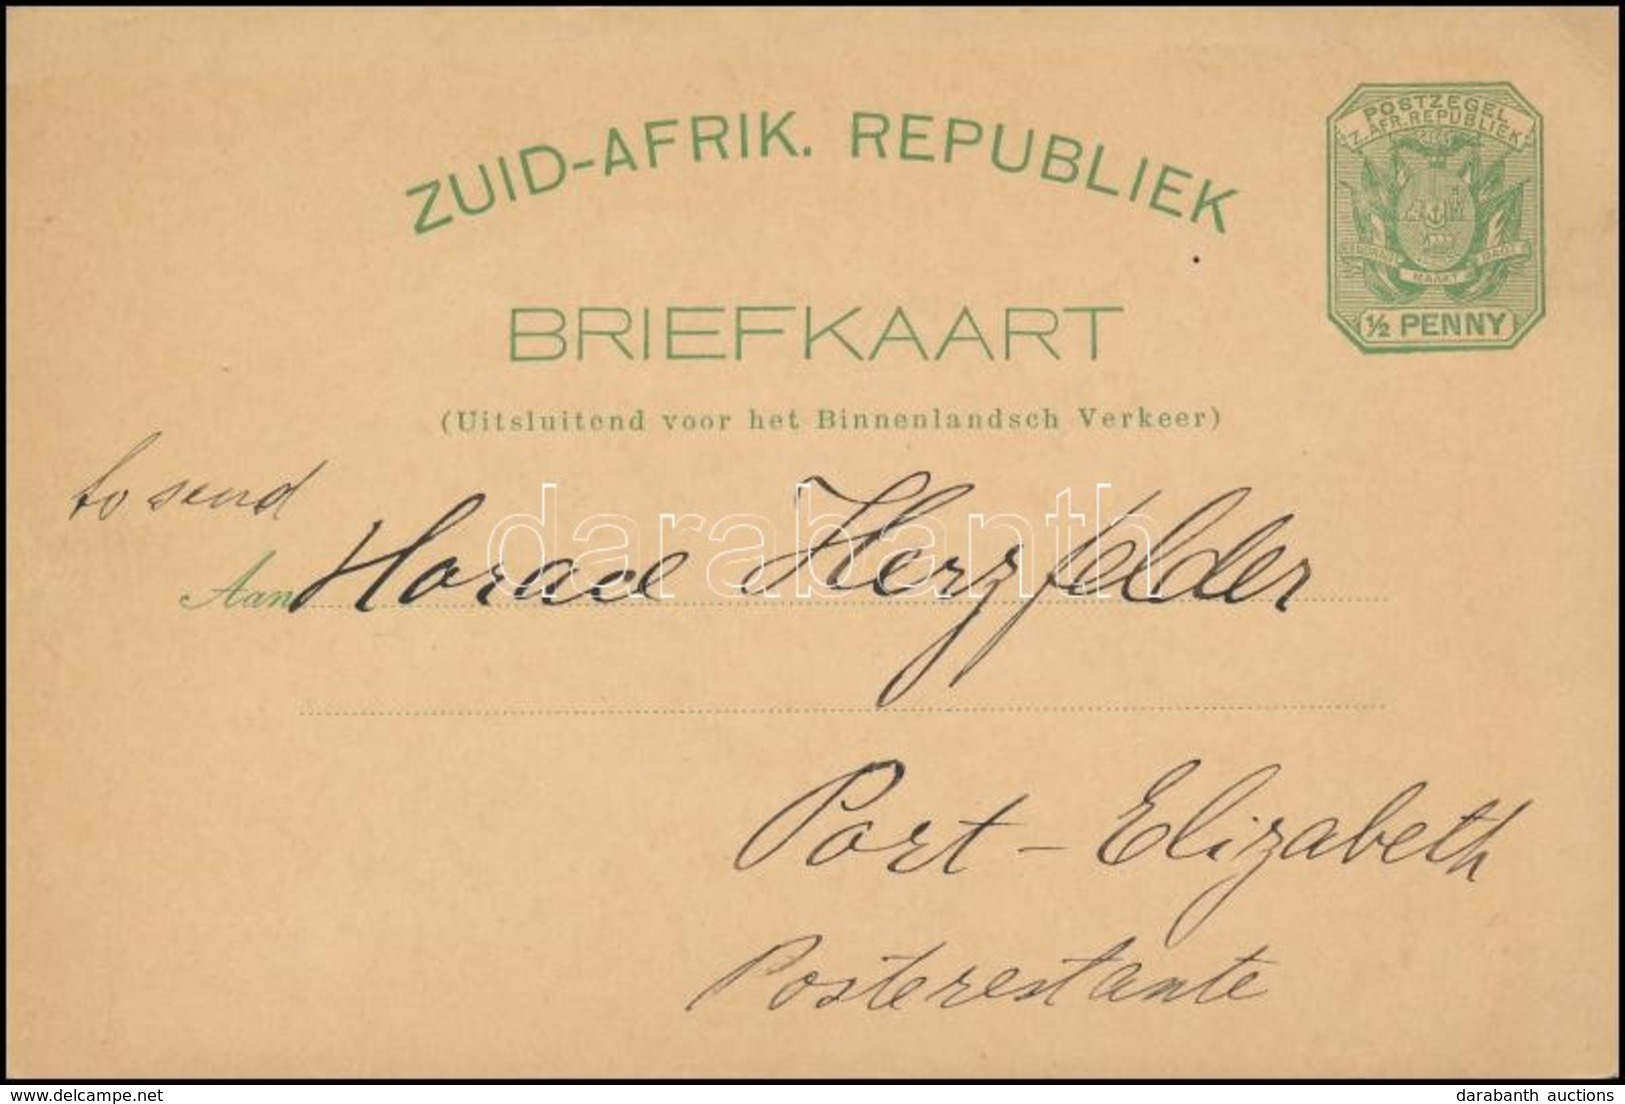 ZUID-AFRIK. REPUBLIEK
POSTZEGEL
Z. AFR. REPUBLIEK
MAAKT
1/2 PENNY
BRIEFKAART
(Uitsluitend voor het Binnenlandsch Verkeer)
to send
Aan Horace Herzfelder
darabanth
Port-Elizabeth
Posterestante
delcampe.net
darabanth auctions